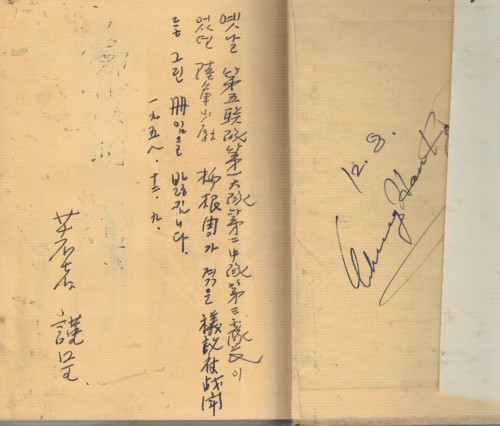 옛날 第五聯隊第一大隊第二中隊第三小隊長이
었던 陸軍少尉 柳根周가 겪은
를 그린 冊임을 밝힙니다.
一九五八.十二.九.
著者 謹呈
12. 8.
Chung